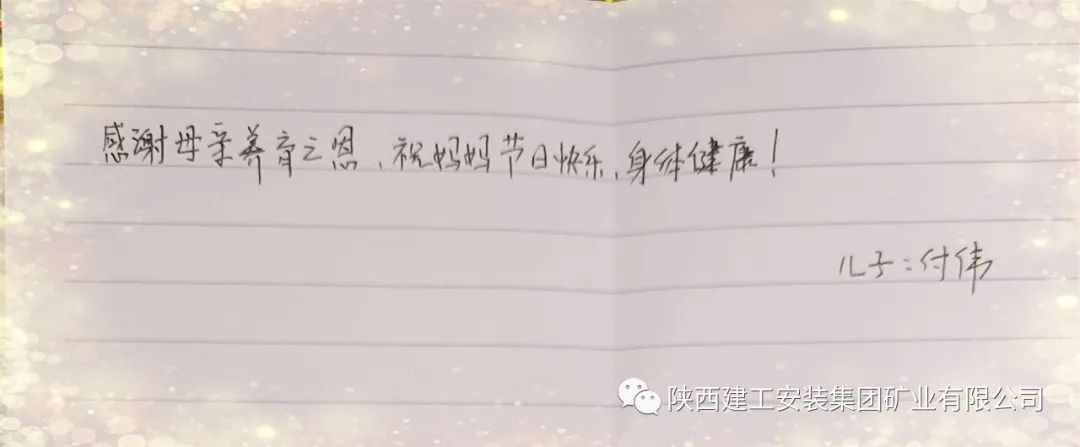 感谢母亲养育之恩、祝妈妈节日快乐、身体健康!
儿子:付伟
陕西建工安装集团矿业有限公司